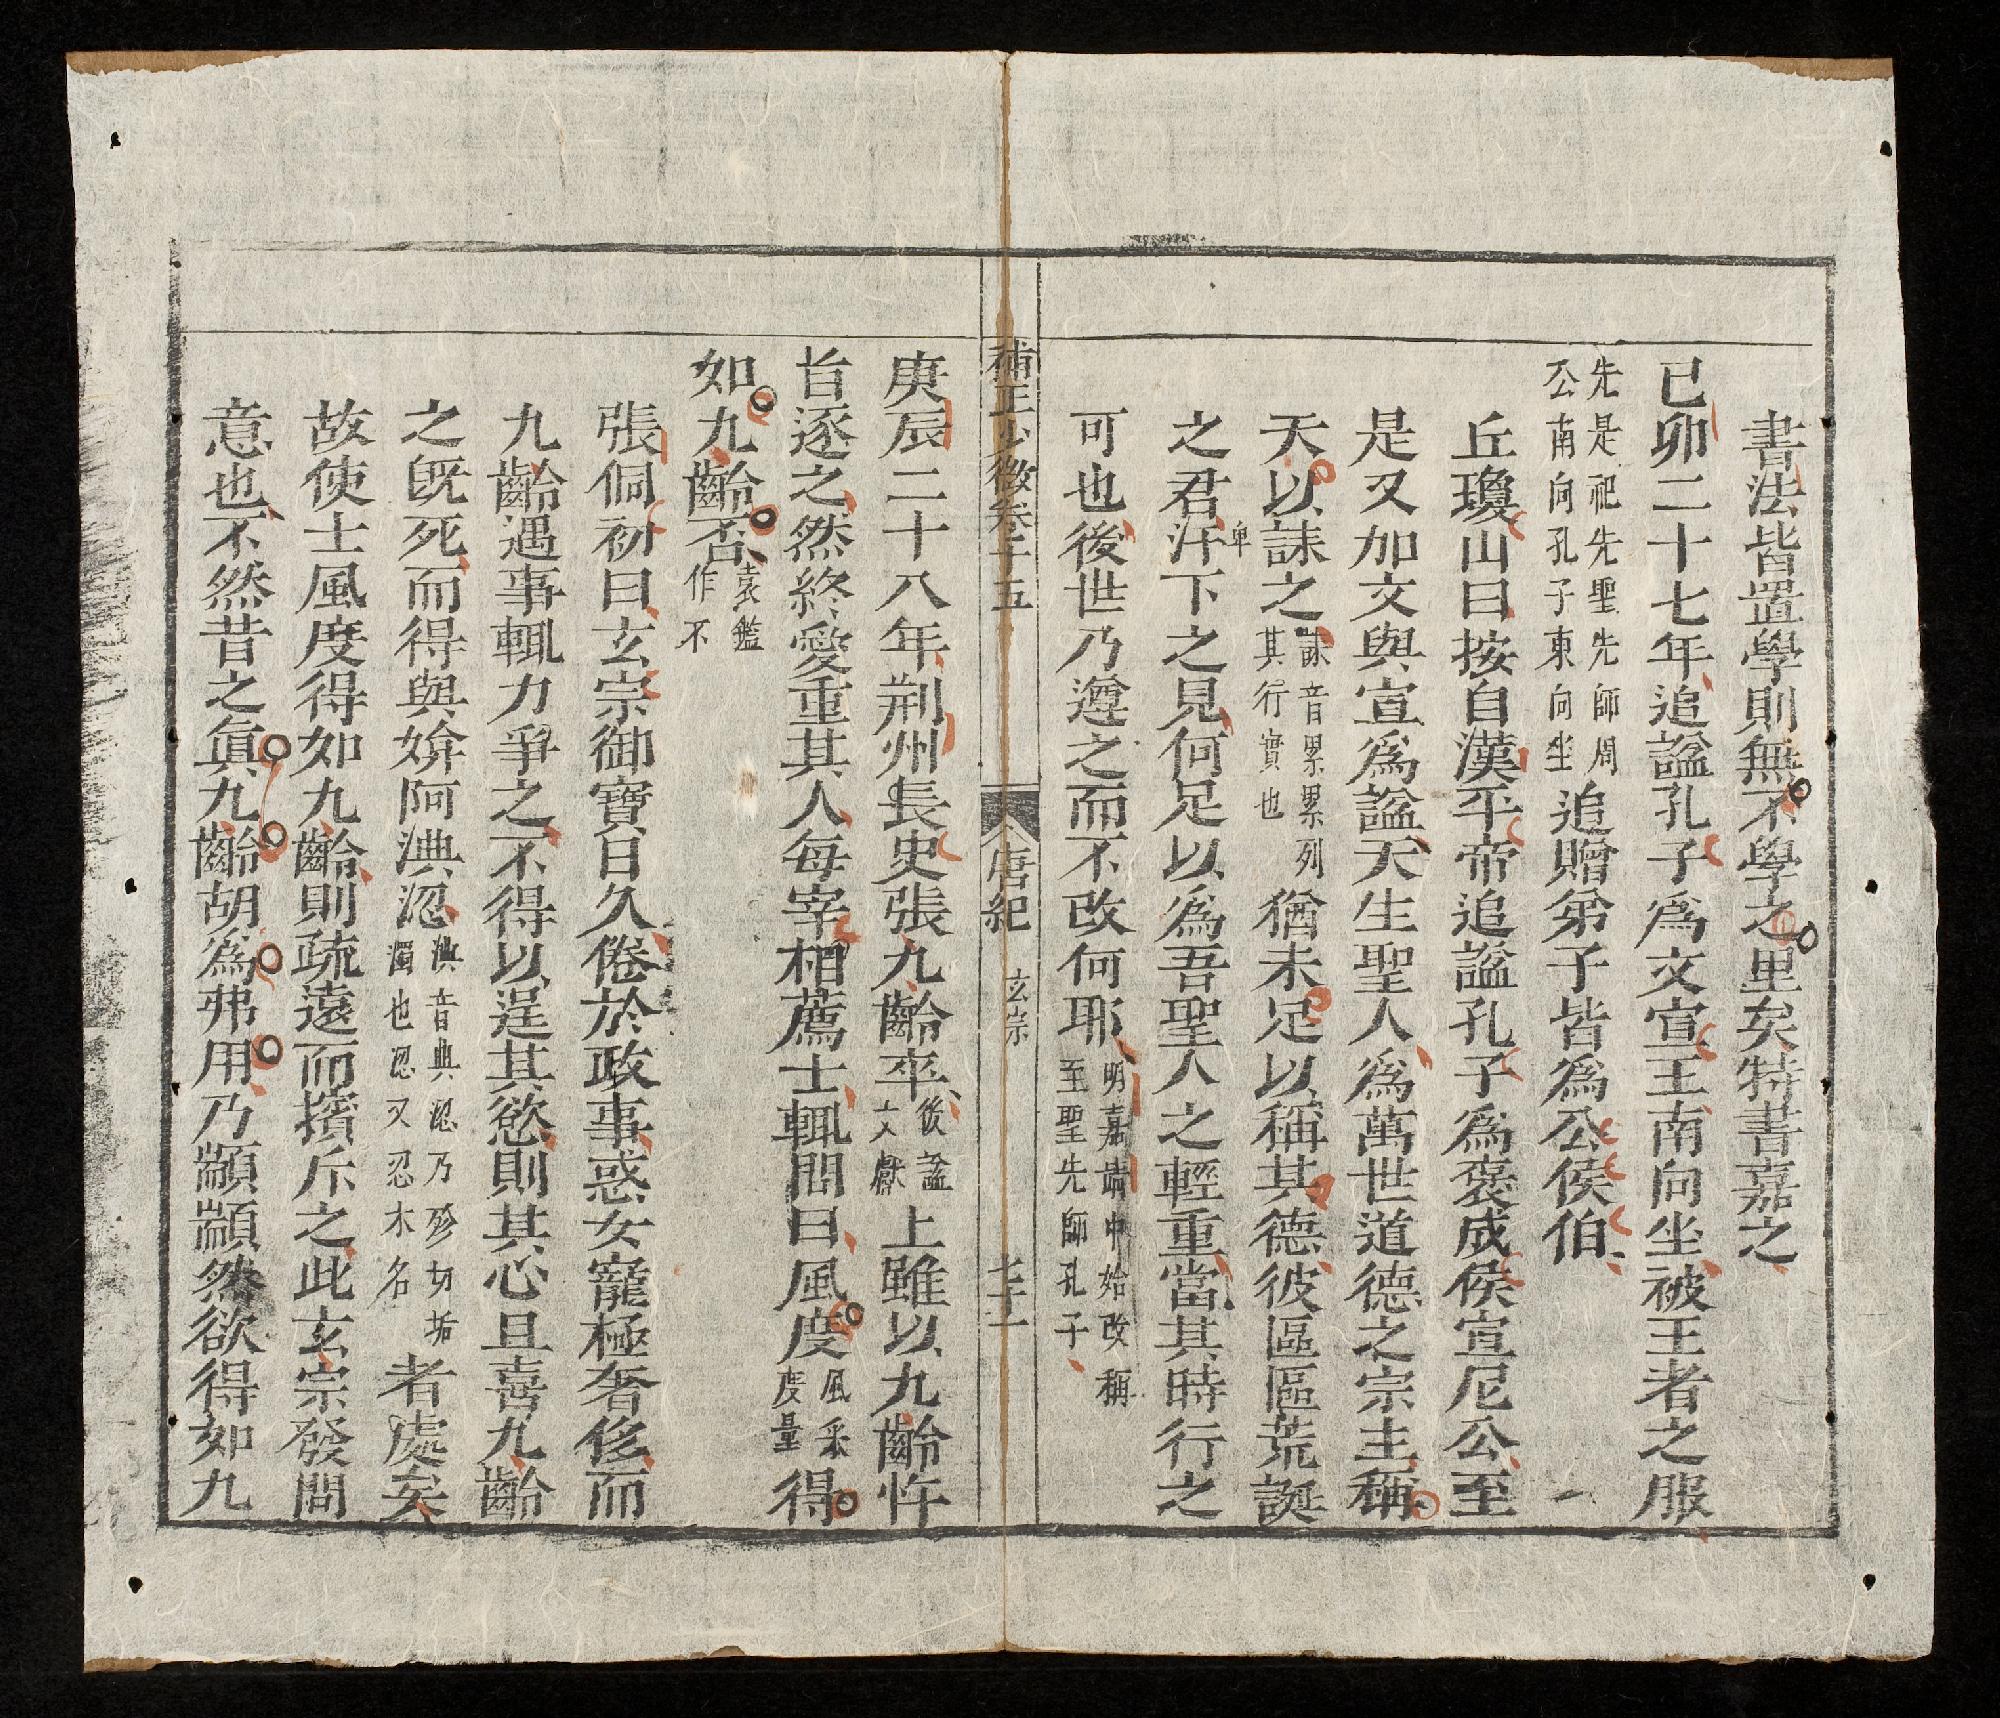 書法皆置學則無不學之里矣特書嘉之
己卯二十七年追謚孔子爲文宣王南向坐被王者之服
先是祀先聖先師周公南向孔子東向坐追贈弟子皆爲公侯伯
丘瓊山曰按自漢平帝追謚孔子爲褒成侯宣尼公至
是又加文與宣爲謚天生聖人爲萬世道德之宗主稱
天以誄之誄音累累列其行實也猶未足以稱其德彼區區荒誕
之君汙卑下之見何足以爲吾聖人之輕重當其時行之
可也後世乃遵之而不改何耶明嘉靖中始改稱至聖先師孔子
補正少微卷三十五 唐紀 玄宗
庚辰二十八年荆州長史張九齡卒後謚文獻上雖以九齡忤
旨逐之然終愛重其人每宰相薦士輒問曰風度風采度量得
如九齡否袁鑑作不
張侗初曰玄宗御寶日久倦於政事惑女寵極奢侈而
九齡遇事輒力爭之不得以逞其慾則其心且喜九齡
之旣死而得與娕阿淟涊淟音典涊乃殄切垢濁也涊又忍木名者處矣
故使士風度得如九齡則疏遠而擯斥之此玄宗發問
意也不然昔之眞九齡胡爲弗用乃顓顓然欲得如九